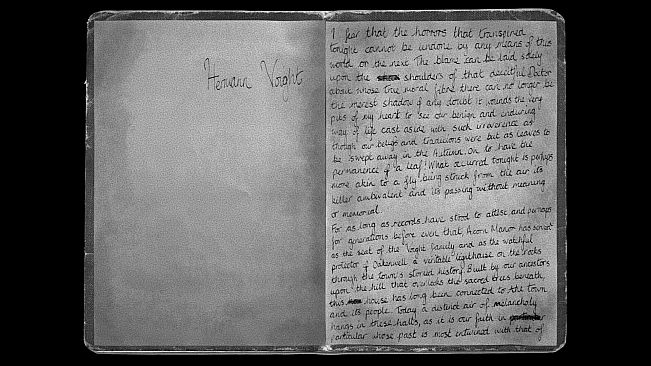 Hermann Voight
I fear that the horrors that transpired
tonight cannot be undone by any means of this
world or the next. The blame can be laid solely
upon the shoulders of that deceitful Doctor
about whose true moral fibre there can no longer be
the merest shadow of any doubt. It wounds the very
pits of my heart to see our benign and enduring
way of life cast aside with such irreverence as
though our beliefs and traditions were but as leaves to
be swept away in the Autumn. Oh to have the
permanence of a leaf! What occurred tonight is perhaps
more akin to a fly being struck from the air, its
killer ambivalent and its passing without meaning
or memorial.
For as long as records have stood to attest, and perhaps
for generations before even that, Acorn Manor has served
as the seat of the Voight family and as the watchful
protector of a veritable lighthouse on the rocks
through the town's storied history. Built by our ancestors
upon the hill that overlooks the sacred trees beneath,
this house has long been connected to the town
and its people. Today a distinct air of melancholy
hangs in these halls, as it is our faith in
particular whose past is most entwined with that of